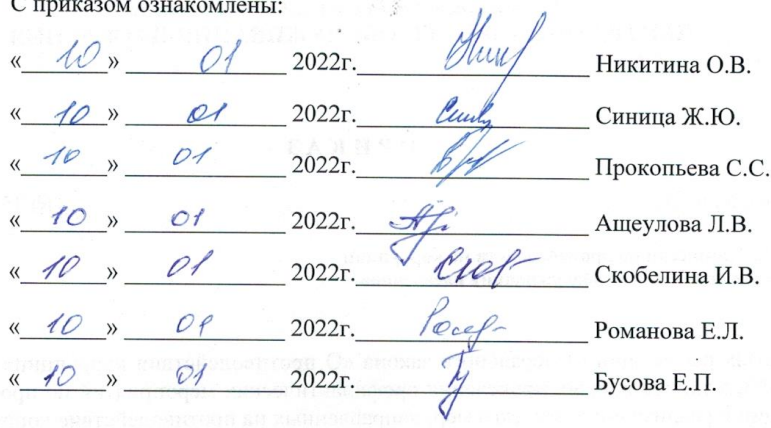 С приказом ознакомлены:
« 10 » 01 2022г. Никитина О.В.
« 10 » 01 2022г. Синица Ж.Ю.
« 10 » 01 2022г. Прокопьева С.С.
« 10 » 01 2022г. Ащеулова Л.В.
« 10 » 01 2022г. Скобелина И.В.
« 10 » 01 2022г. Романова Е.Л.
« 10 » 01 2022г. Бусова Е.П.